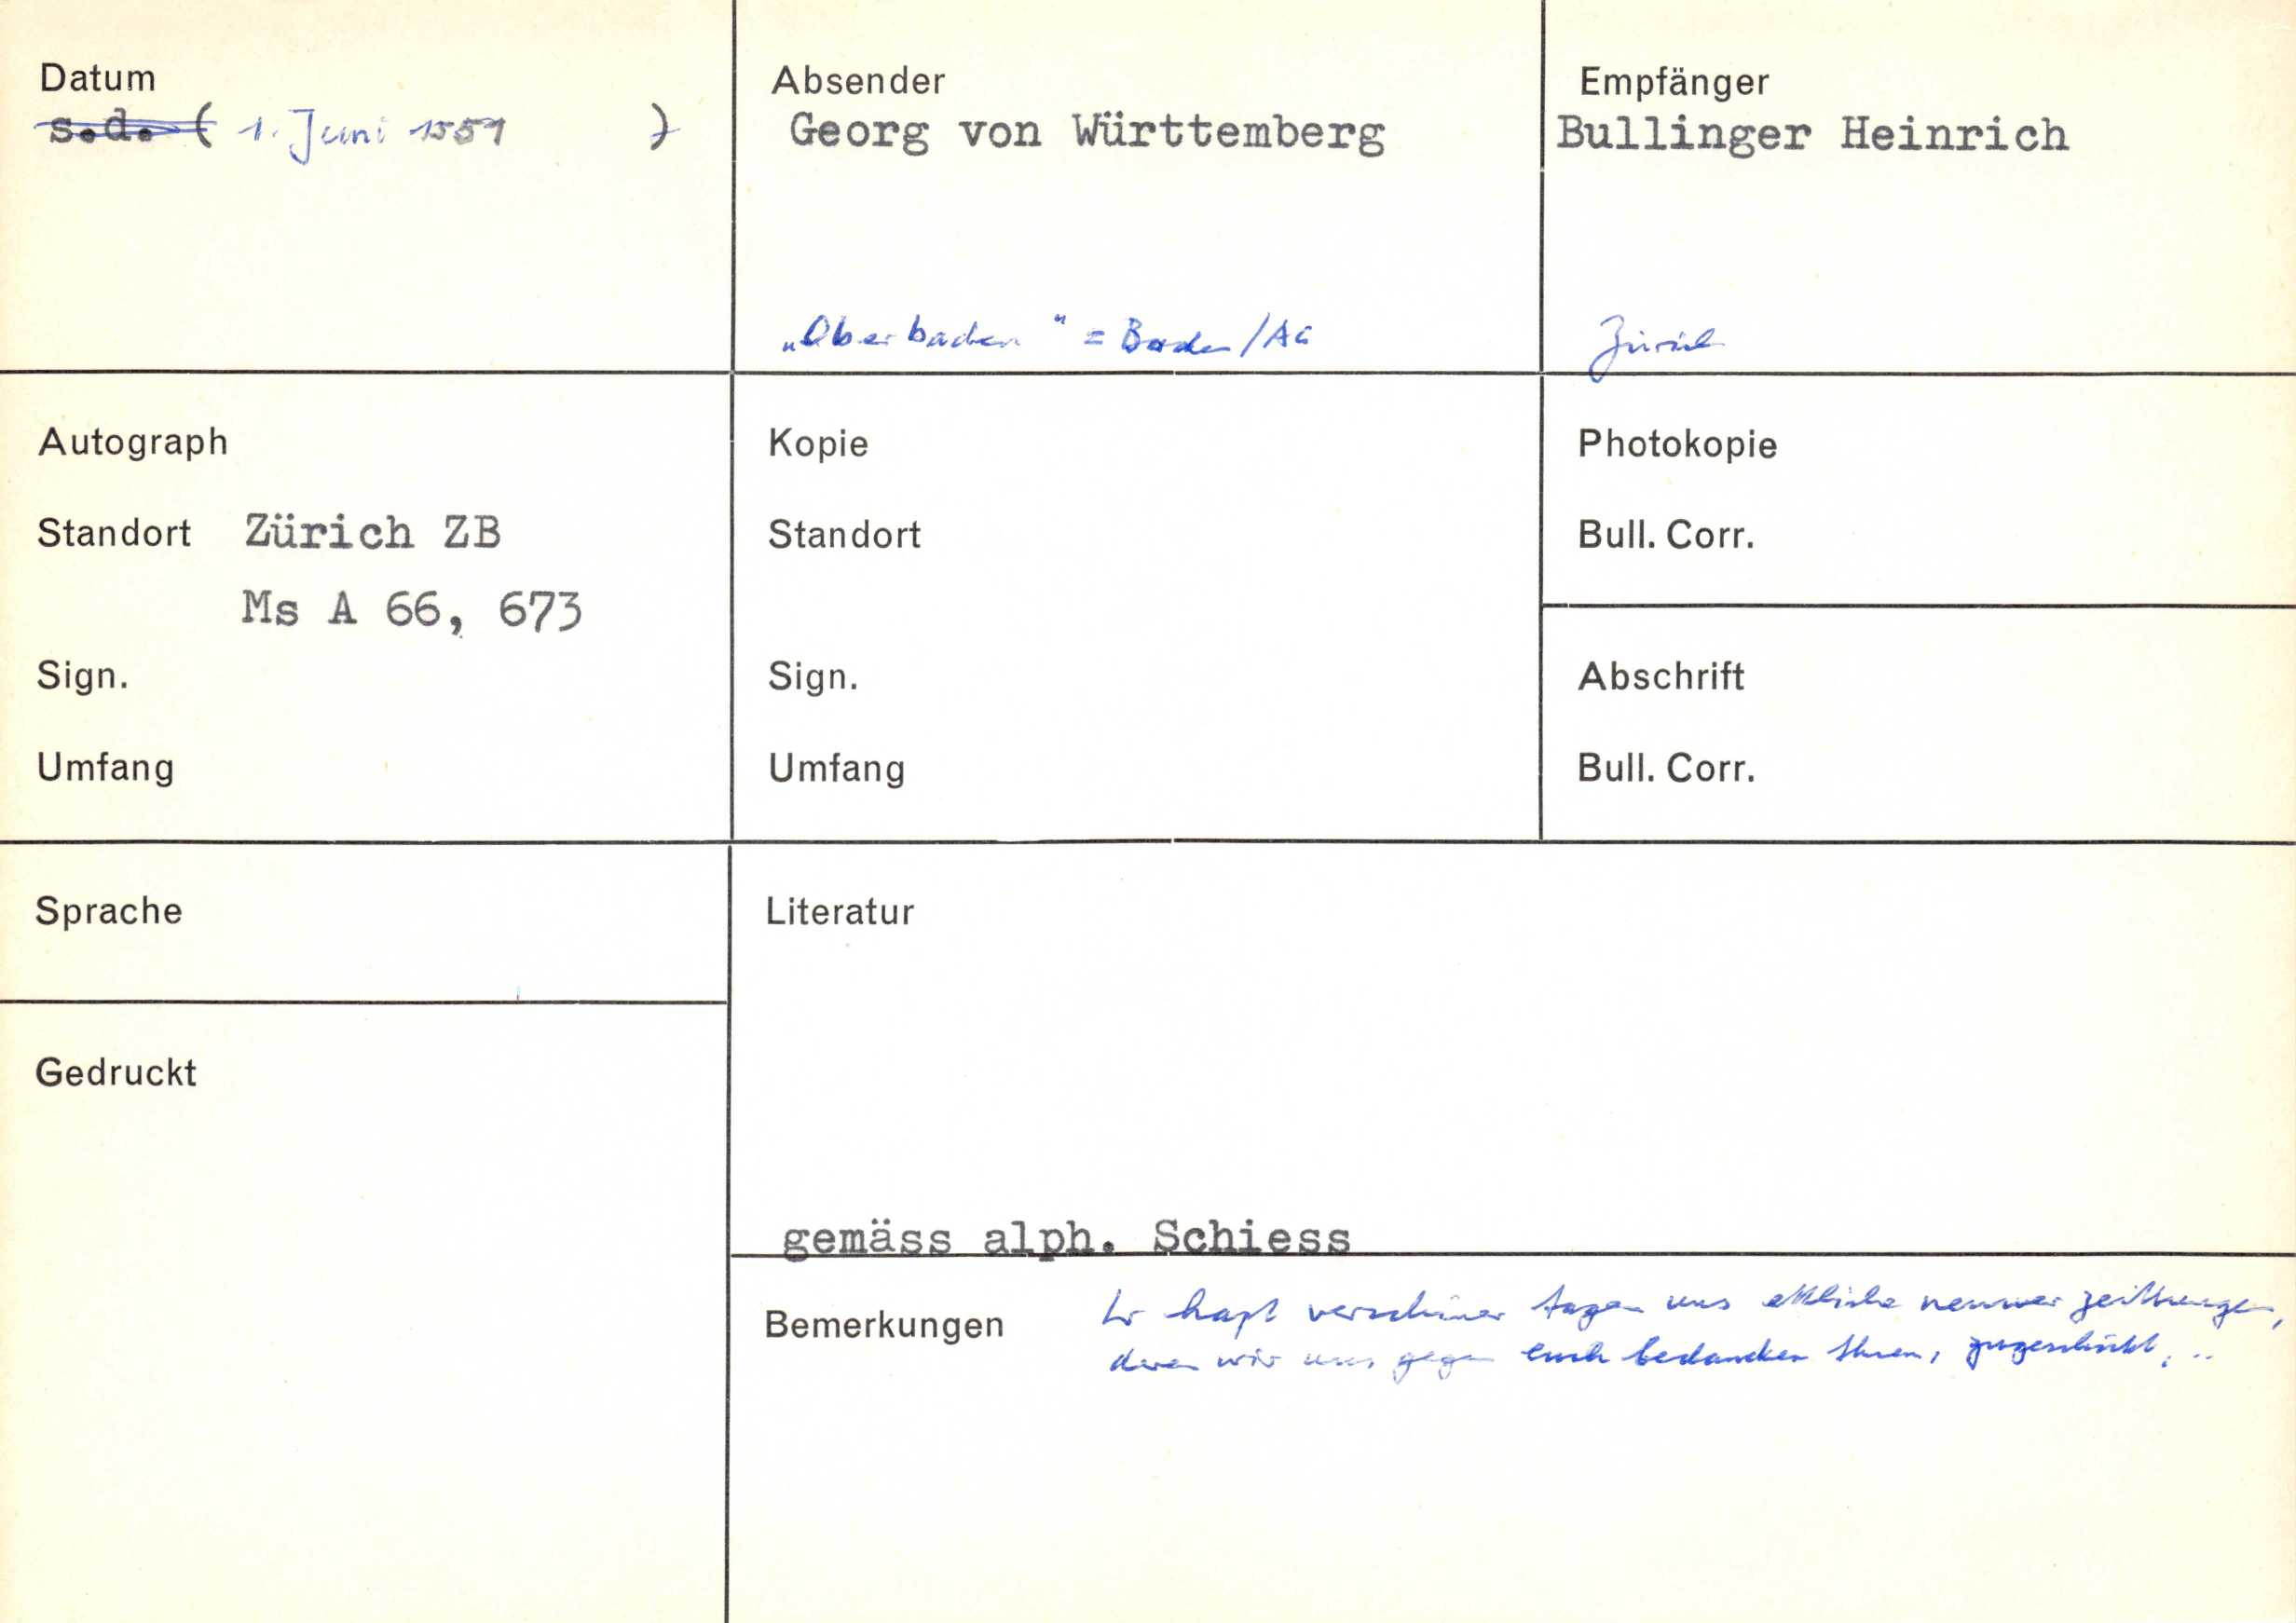 Datum
s.d. ( 1. Juni 1551 )
Absender
Georg von Württemberg
„Oberbaden" = Baden/AG
Empfänger
Bullinger Heinrich
Zürich
Autograph
Standort Zürich ZB
Ms A 66, 673
Sign.
Umfang
Kopie
Standort
Sign.
Umfang
Photokopie
Bull. Corr.
Abschrift
Bull. Corr.
Sprache
Gedruckt
Literatur
gemäss alph. Schiess
Bemerkungen
Ir hapt verschiner tagen uns ettliche neuwer zeittungen,
deren wir uns gegen euch bedancken thuen, zugeschickt, ..